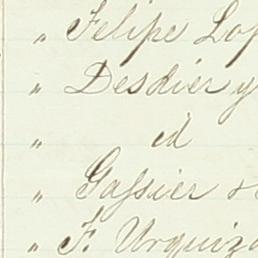 " Felipe Lop
" Desdier y
" id
" Gassier &
" F. Urquiza